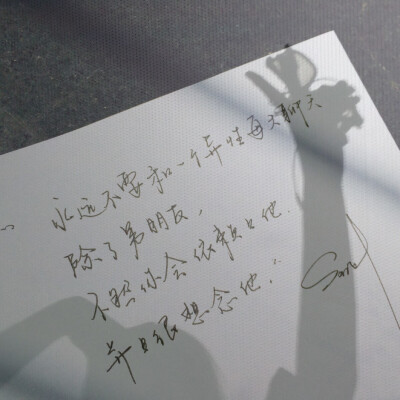 “永远不要和一个异性每天聊天
除了男朋友,
不然你会依赖上他.
并且很想念他.”